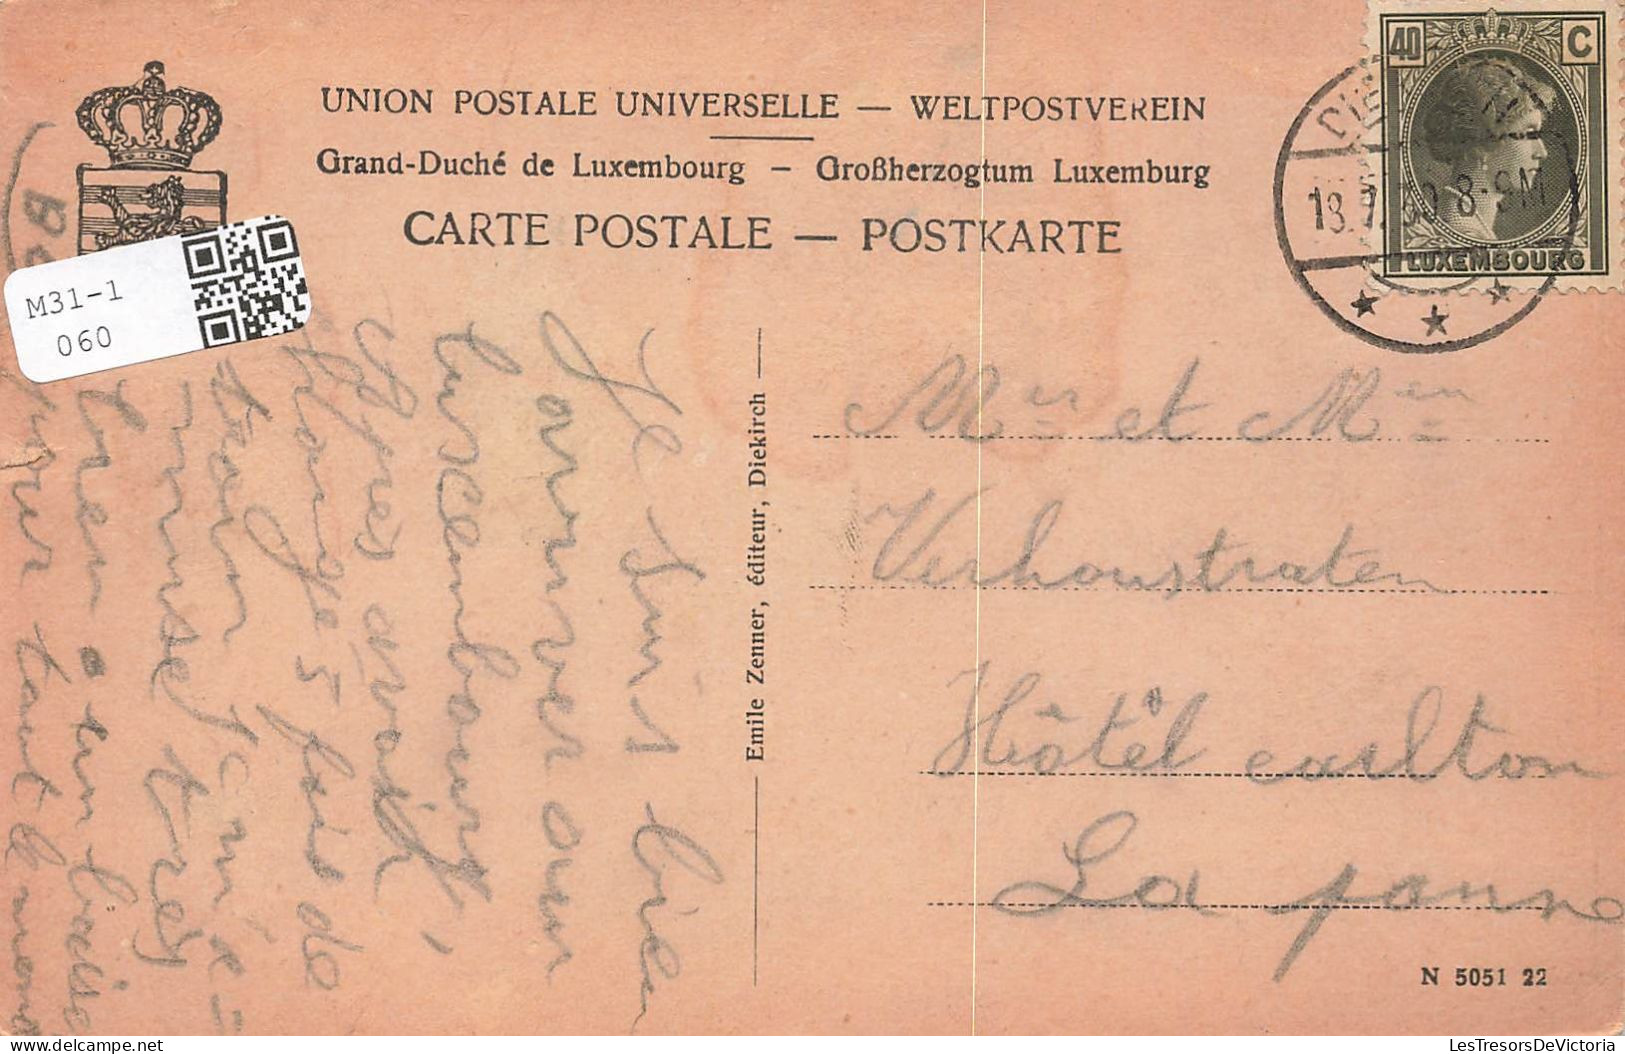 UNION POSTALE UNIVERSELLE — WELTPOSTVEREIN
Grand-Duché de Luxembourg — Großherzogtum Luxemburg
CARTE POSTALE — POSTKARTE
40 C
LUXEMBOURG
8-9M
M31-1
060
Je suis bien
arriver au
luxembourg,
Apres avoir
change 5 fois de
train, je m'é-
amuse tres
bien • un baise
pour tout le mon
Emile Zenner, éditeur, Diekirch
Mr et Mm
Verhoustraten
Hôtel carlton
La panne
N 5051 22
delcampe.net
LesTresorsDeVictoria